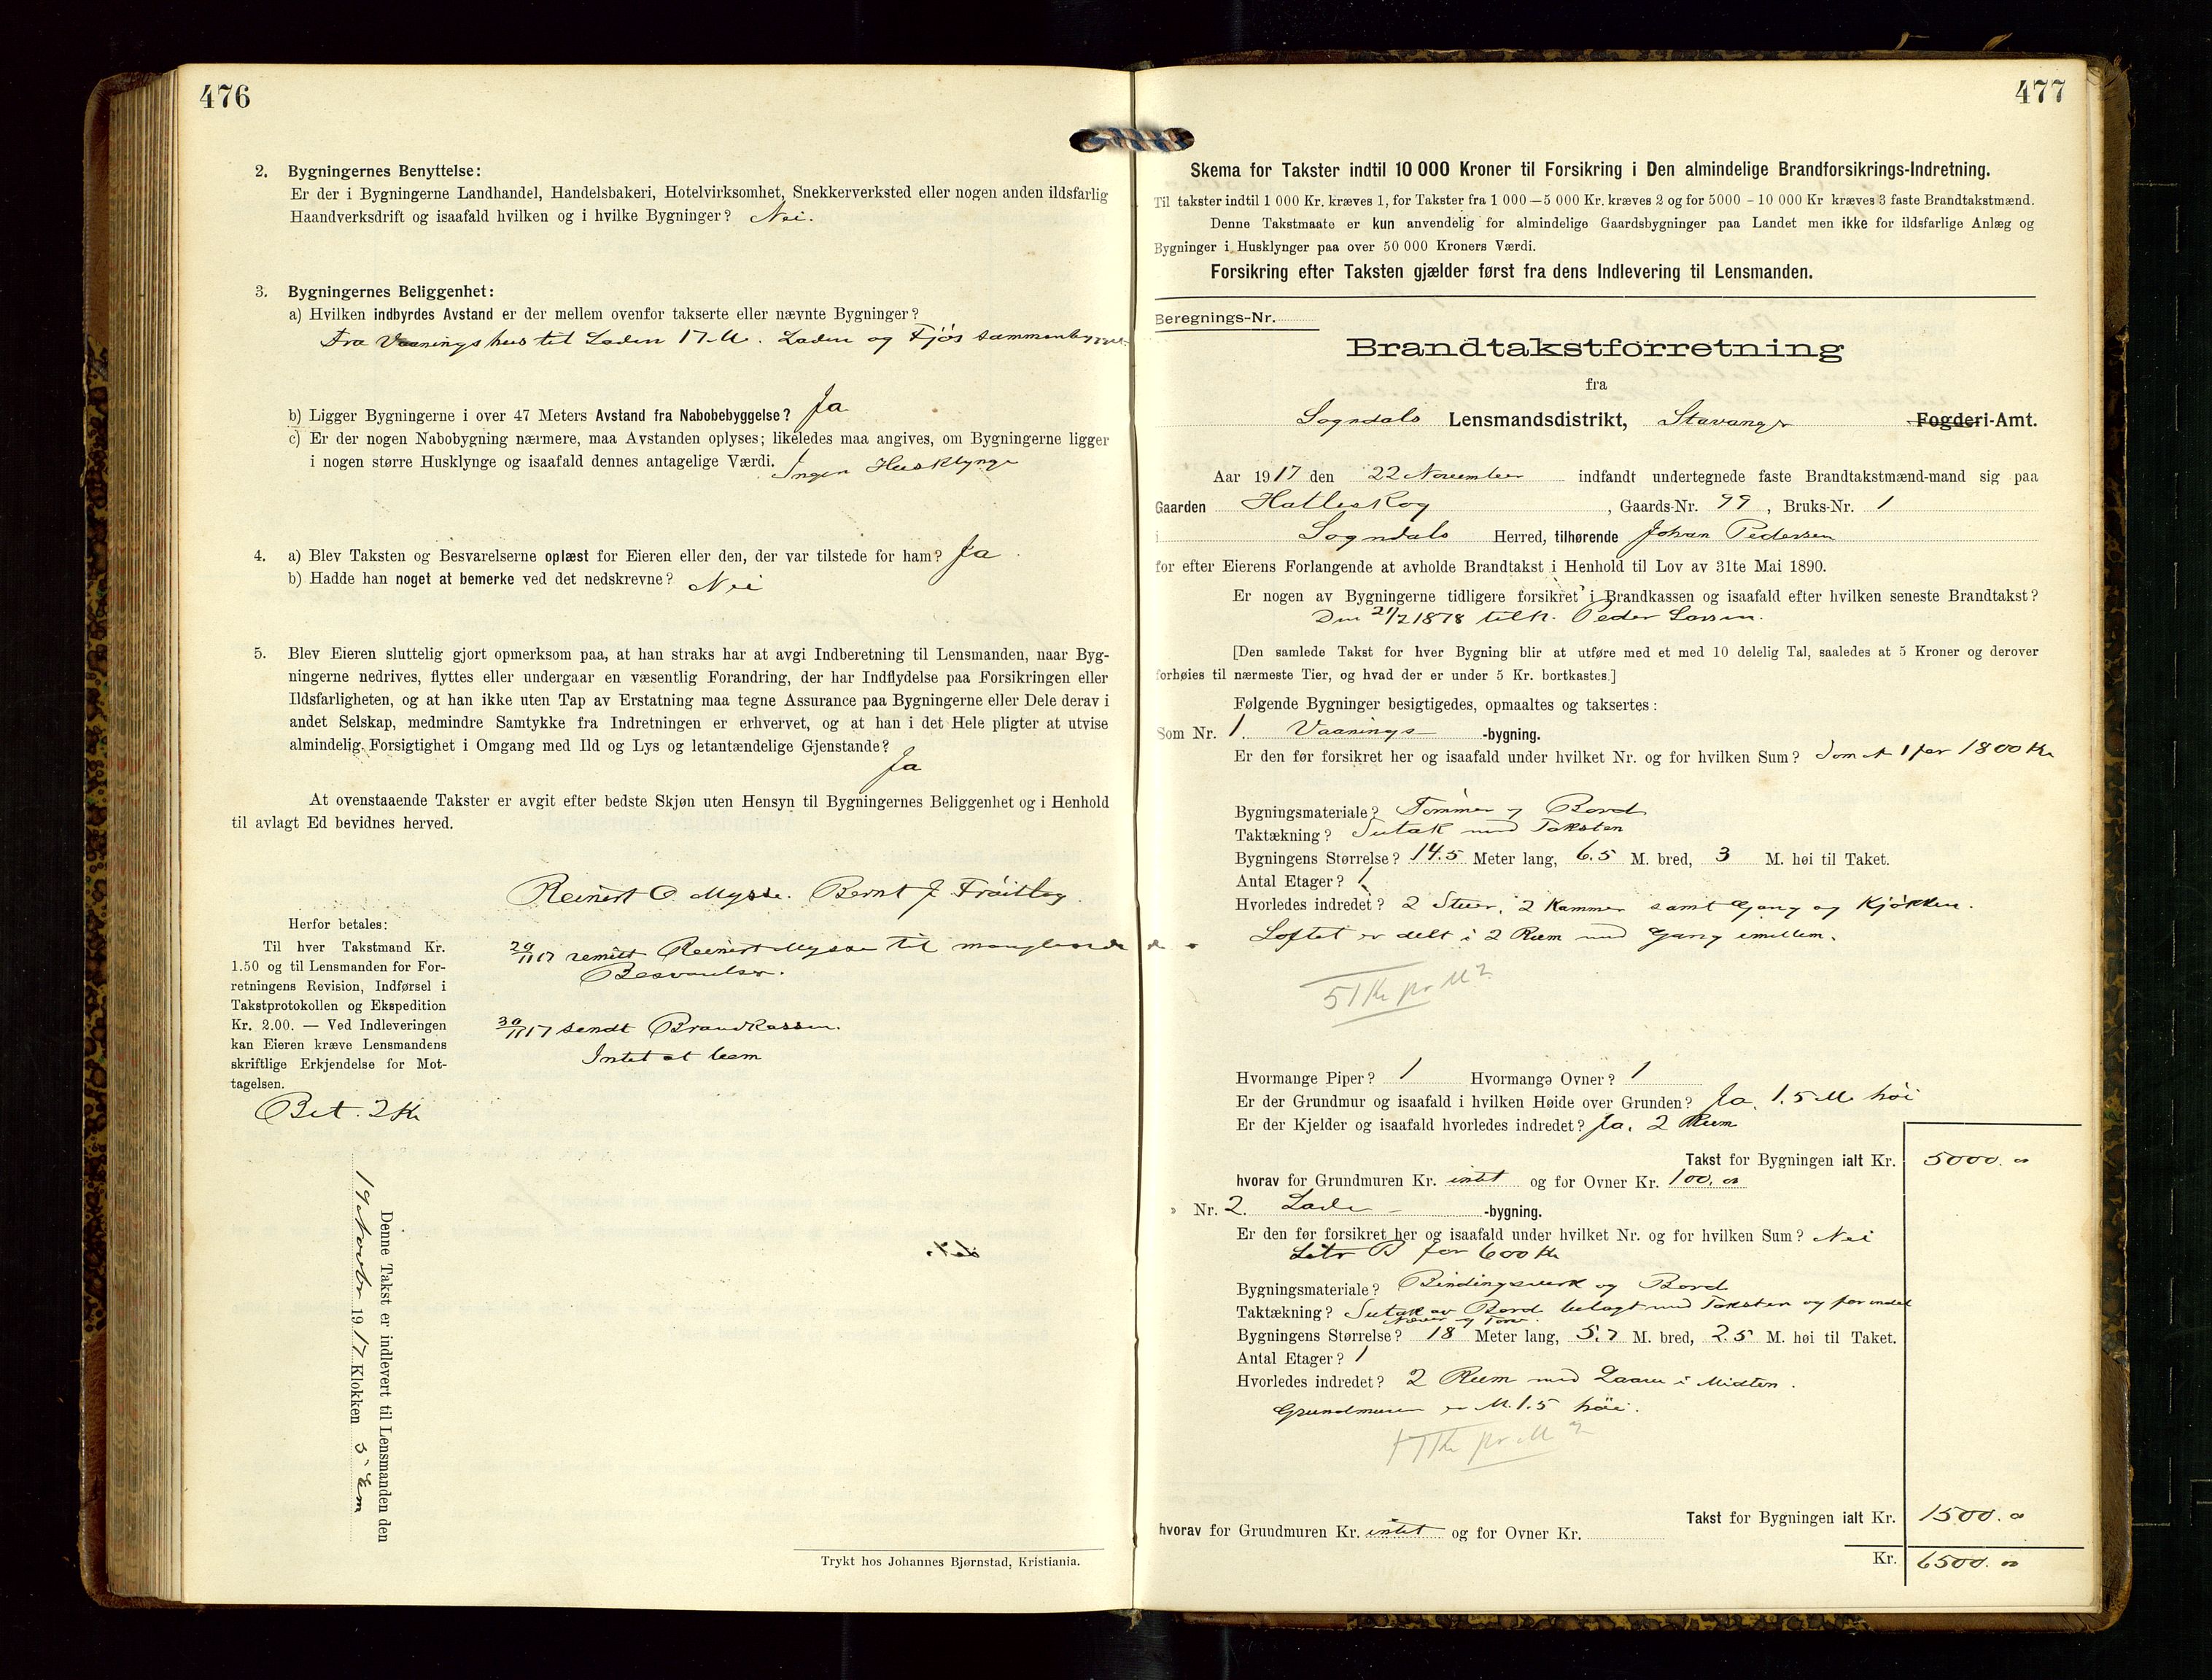 476
2. Bygningernes Benyttelse:
Er der i Bygningerne Landhandel, Handelsbakeri, Hotelvirksomhet, Snekkerverksted eller nogen anden ildsfarlig
Haandverksdrift og isaafald hvilken og i hvilke Bygninger? Nei.
3. Bygningernes Beliggenhet:
a) Hvilken indbyrdes Avstand er der mellem ovenfor takserte eller nævnte Bygninger?
Fra Vaaningshus til Laden 17 M. Laden og Fjøs sammenbygget.
b) Ligger Bygningerne i over 47 Meters Avstand fra Nabobebyggelse? Ja
c) Er der nogen Nabobygning nærmere, maa Avstanden oplyses; likeledes maa angives, om Bygningerne ligger
i nogen større Husklynge og isaafald dennes antagelige Værdi. Ingen Husklynge
4. a) Blev Taksten og Besvarelserne oplæst for Eieren eller den, der var tilstede for ham? Ja
b) Hadde han noget at bemerke ved det nedskrevne? Nei
5. Blev Eieren sluttelig gjort opmerksom paa, at han straks har at avgi Indberetning til Lensmanden, naar Byg-
ningerne nedrives, flyttes eller undergaar en væsentlig Forandring, der har Indflydelse paa Forsikringen eller
Ildsfarligheten, og at han ikke uten Tap av Erstatning maa tegne Assurance paa Bygningerne eller Dele derav i
andet Selskap, medmindre Samtykke fra Indretningen er erhvervet, og at han i det Hele pligter at utvise
almindelig Forsigtighet i Omgang med Ild og Lys og letantændelige Gjenstande?
Ja
At ovenstaaende Takster er avgit efter bedste Skjøn uten Hensyn til Bygningernes Beliggenhet og i Henhold
til avlagt Ed bevidnes herved.
Reinert O. Mysse. Bernt J
Herfor betales:
Til hver Takstmand Kr.
1.50 og til Lensmanden for For-
retningens Revision, Indførsel i
Takstprotokollen og Ekspedition
Kr. 2.00. — Ved Indleveringen
kan Eieren kræve Lensmandens
skriftlige Erkjendelse for Mot-
tagelsen.
Bet. 2 Kr
17 remitt Reinert Mysse til manglende
Besvarelser.
30/11 17 sendt Brandkassen.
Intet at bem
Denne Takst er indlevert til Lensmanden den
1917 Klokken 5 Em
Trykt hos Johannes Bjørnstad, Kristiania.
477
Skema for Takster indtil 10 000 Kroner til Forsikring i Den almindelige Brandforsikrings-Indretning.
Til takster indtil 1 000 Kr. kræves 1, for Takster fra 1 000—5 000 Kr. kræves 2 og for 5000 - 10 000 Kr kræves 3 faste Brandtakstmænd.
Denne Takstmaate er kun anvendelig for almindelige Gaardsbygninger paa Landet men ikke for ildsfarlige Anlæg og
Bygninger i Husklynger paa over 50 000 Kroners Værdi.
Forsikring efter Taksten gjælder først fra dens Indlevering til Lensmanden.
Beregnings-Nr.
Brandtakstforretning
fra
Sogndals Lensmandsdistrikt, Stavanger Fogderi-Amt.
Aar 1917 den 22 November indfandt undertegnede faste Brandtakstmænd-mand sig paa
Gaarden Hatleskog, Gaards-Nr. 99, Bruks-Nr. 1
i Sogndals Herred, tilhørende Johan Pedersen
for efter Eierens Forlangende at avholde Brandtakst i Henhold til Lov av 31te Mai 1890.
Er nogen av Bygningerne tidligere forsikret i Brandkassen og isaafald efter hvilken seneste Brandtakst?
Den 21/2 1878 tilh. Peder Larsen.
[Den samlede Takst for hver Bygning blir at utføre med et med 10 delelig Tal, saaledes at 5 Kroner og derover
forhøies til nærmeste Tier, og hvad der er under 5 Kr. bortkastes.]
Følgende Bygninger besigtigedes, opmaaltes og taksertes:
Som Nr. 1. Vaanings -bygning.
Er den før forsikret her og isaafald under hvilket Nr. og for hvilken Sum? Som 1 for 1800 Kr
Bygningsmateriale? Tømmer og Bord
Taktækning? Sutak med Taksten
Bygningens Størrelse? 14.5 Meter lang, 6.5 M. bred, 3 M. høi til Taket.
Antal Etager? 1
Hvorledes indredet? 2 Stuer, 2 Kammer samt Gang og Kjøkken.
Loftet er delt i 2 Rum med Gang imellem.
51 Kr pr M2
Hvormange Piper? 1 Hvormange Ovner? 1
Er der Grundmur og isaafald i hvilken Høide over Grunden? Ja, 1.5 M høi
Er der Kjelder og isaafald hvorledes indredet? Ja. 2 Rum
Takst for Bygningen ialt Kr. 5000.00
hvorav for Grundmuren Kr. intet og for Ovner Kr. 100.00
» Nr. 2. Lade -bygning.
Er den før forsikret her og isaafald under hvilket Nr. og for hvilken Sum? Nei
Litr B for 600 Kr
Bygningsmateriale? Bindingsverk og Bord
Taktækning? Sutak av Bord belagt med Taksten og for
Never og Torv.
Bygningens Størrelse? 18 Meter lang, 5.7 M. bred, 2.5 M. høi til Taket.
Antal Etager? 1
Hvorledes indredet? 2 Rum med Laave i Midten.
Grundmuren er M. 1.5 høi.
Kr pr M2
Takst for Bygningen ialt Kr. 1500.00
hvorav for Grundmuren Kr. intet og for Ovner Kr.
Kr. 6500.00